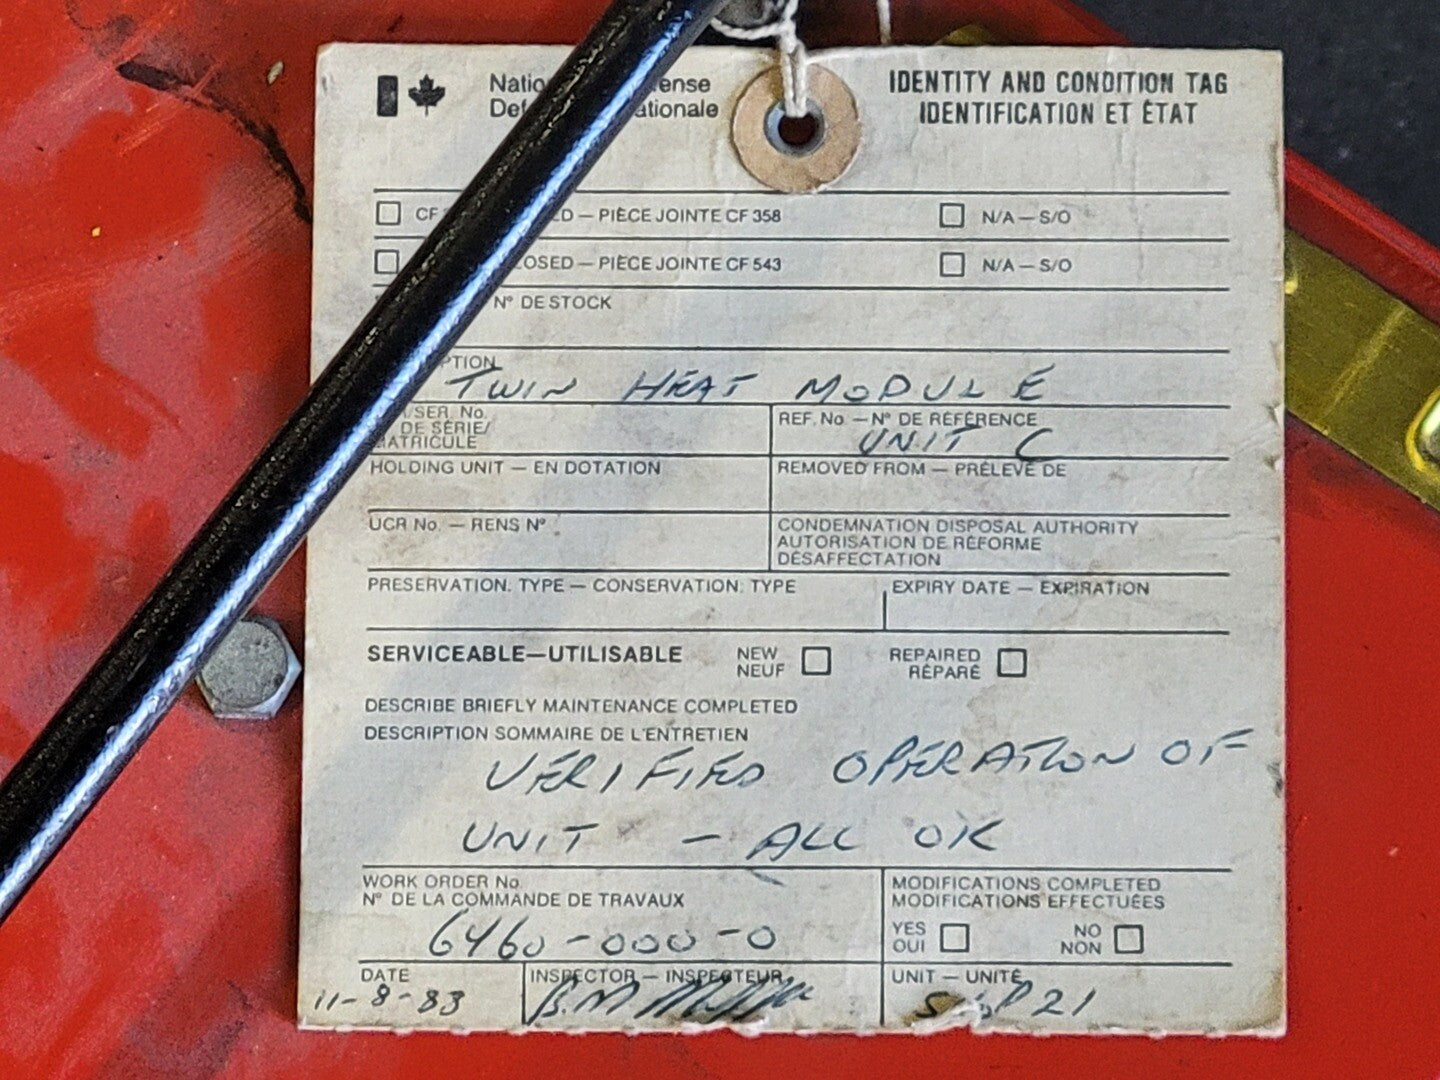 IDENTITY AND CONDITION TAG
IDENTIFICATION ET ÉTAT
PIÈCE JOINTE CF 358
N/A — S/O
PIÈCE JOINTE CF 543
N/A — S/O
N° DE STOCK
TWIN HEAT MODULE
SER. No.
DE SÉRIE/
REF. No — N° DE RÉFÉRENCE
UNIT C
HOLDING UNIT — EN DOTATION
REMOVED FROM — PRÉLEVÉ DE
UCR No. — RENS N°
CONDEMNATION DISPOSAL AUTHORITY
AUTORISATION DE RÉFORME
DÉSAFFECTATION
PRESERVATION. TYPE — CONSERVATION: TYPE
EXPIRY DATE — EXPIRATION
SERVICEABLE—UTILISABLE
NEW
NEUF
REPAIRED
RÉPARÉ
DESCRIBE BRIEFLY MAINTENANCE COMPLETED
DESCRIPTION SOMMAIRE DE L'ENTRETIEN
VERIFIED OPERATION OF
UNIT - ALL OK
WORK ORDER No.
N° DE LA COMMANDE DE TRAVAUX
6460-000-0
MODIFICATIONS COMPLETED
MODIFICATIONS EFFECTUÉES
YES
OUI
NO
NON
DATE
11-8-83
INSPECTOR — INSPECTEUR
B.M
UNIT — UNITÉ
21